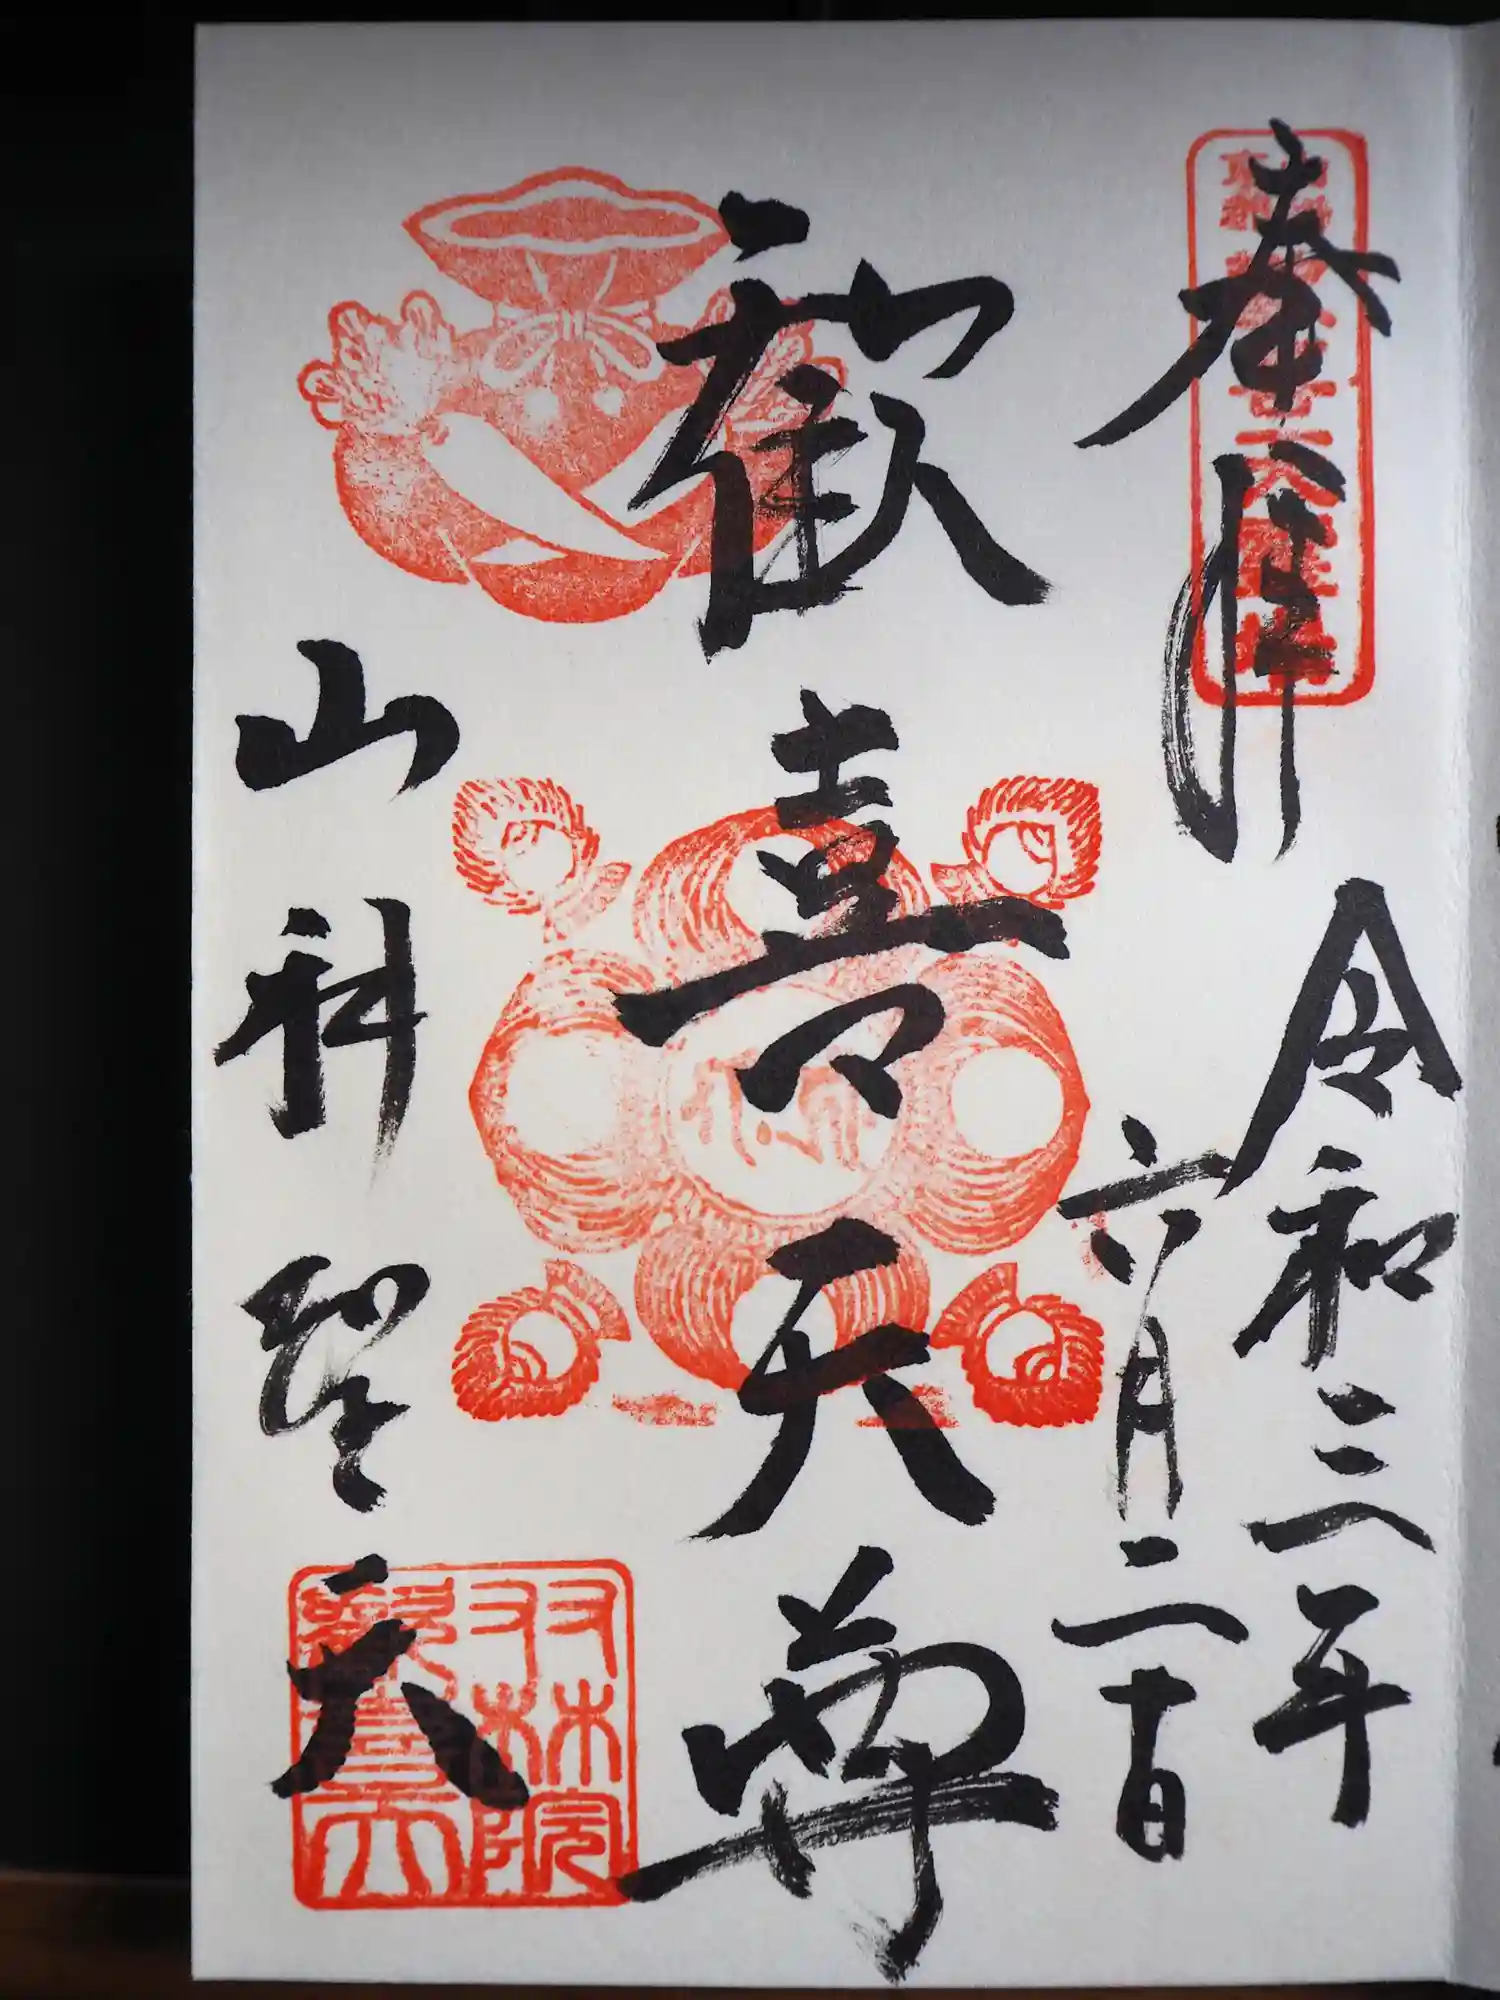 奉拝
令和三年
六月二十日
歓喜天尊
山科聖天
双林院
聖天